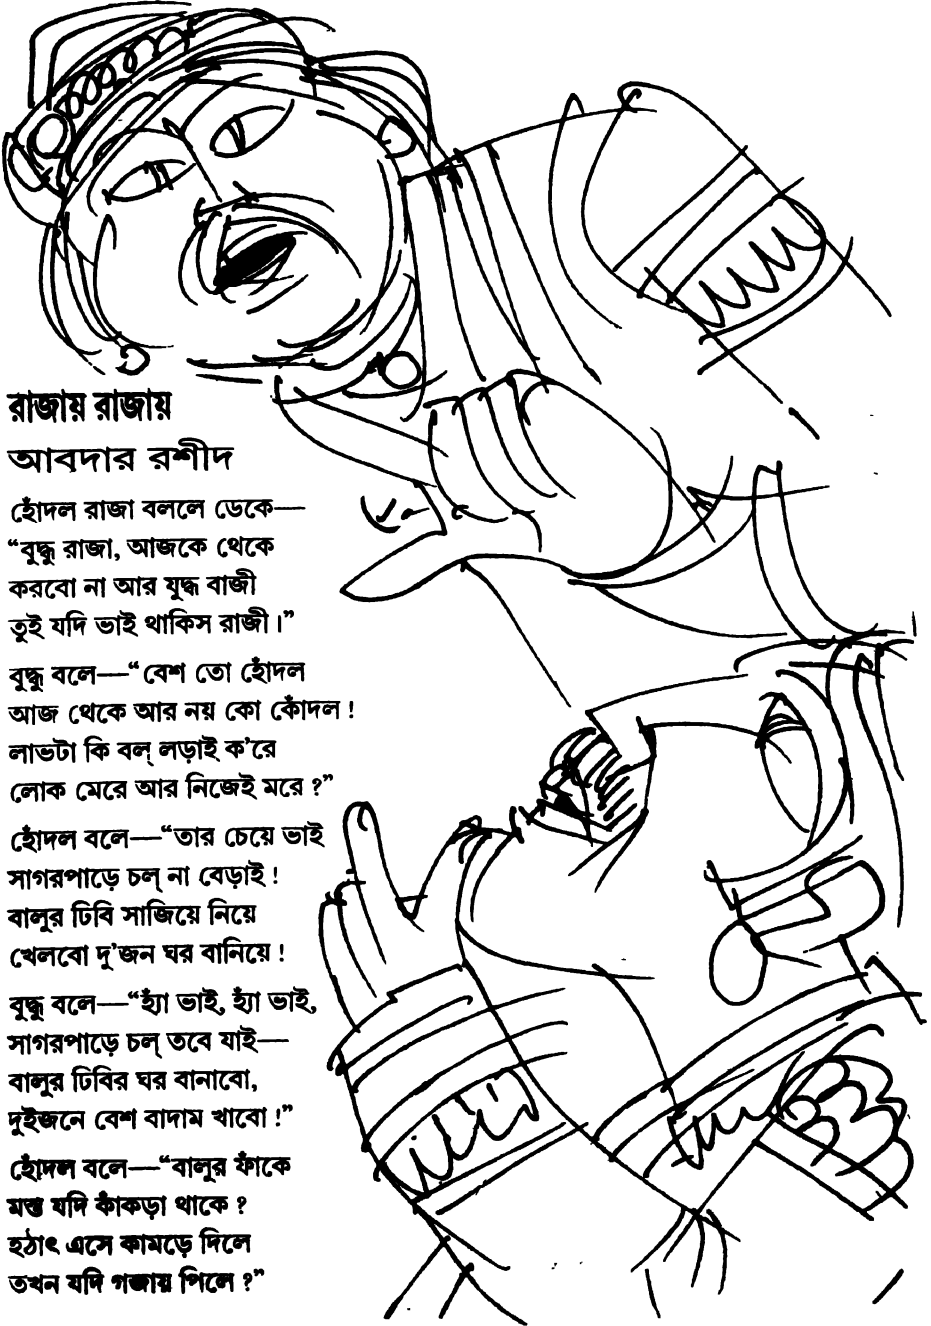 রাজায় রাজায়
আবদার রশীদ
হোঁদল রাজা বললে ডেকে—
“বুদ্ধু রাজা, আজকে থেকে
করবো না আর যুদ্ধ বাজী
তুই যদি ভাই থাকিস রাজী।”
বুদ্ধু বলে—“বেশ তো হোঁদল
আজ থেকে আর নয় কো কোঁদল !
লাভটা কি বল্ লড়াই ক’রে
লোক মেরে আর নিজেই মরে ?”
হোঁদল বলে—“তার চেয়ে ভাই
সাগরপাড়ে চল্ না বেড়াই !
বালুর ঢিবি সাজিয়ে নিয়ে
খেলবো দু’জন ঘর বানিয়ে !
বুদ্ধু বলে—“হ্যাঁ ভাই, হ্যাঁ ভাই,
সাগরপাড়ে চল্ তবে যাই—
বালুর ঢিবির ঘর বানাবো,
দুইজনে বেশ বাদাম খাবো !”
হোঁদল বলে—“বালুর ফাঁকে
মস্ত যদি কাঁকড়া থাকে ?
হঠাৎ এসে কামড়ে দিলে
তখন যদি গজায় পিলে ?”